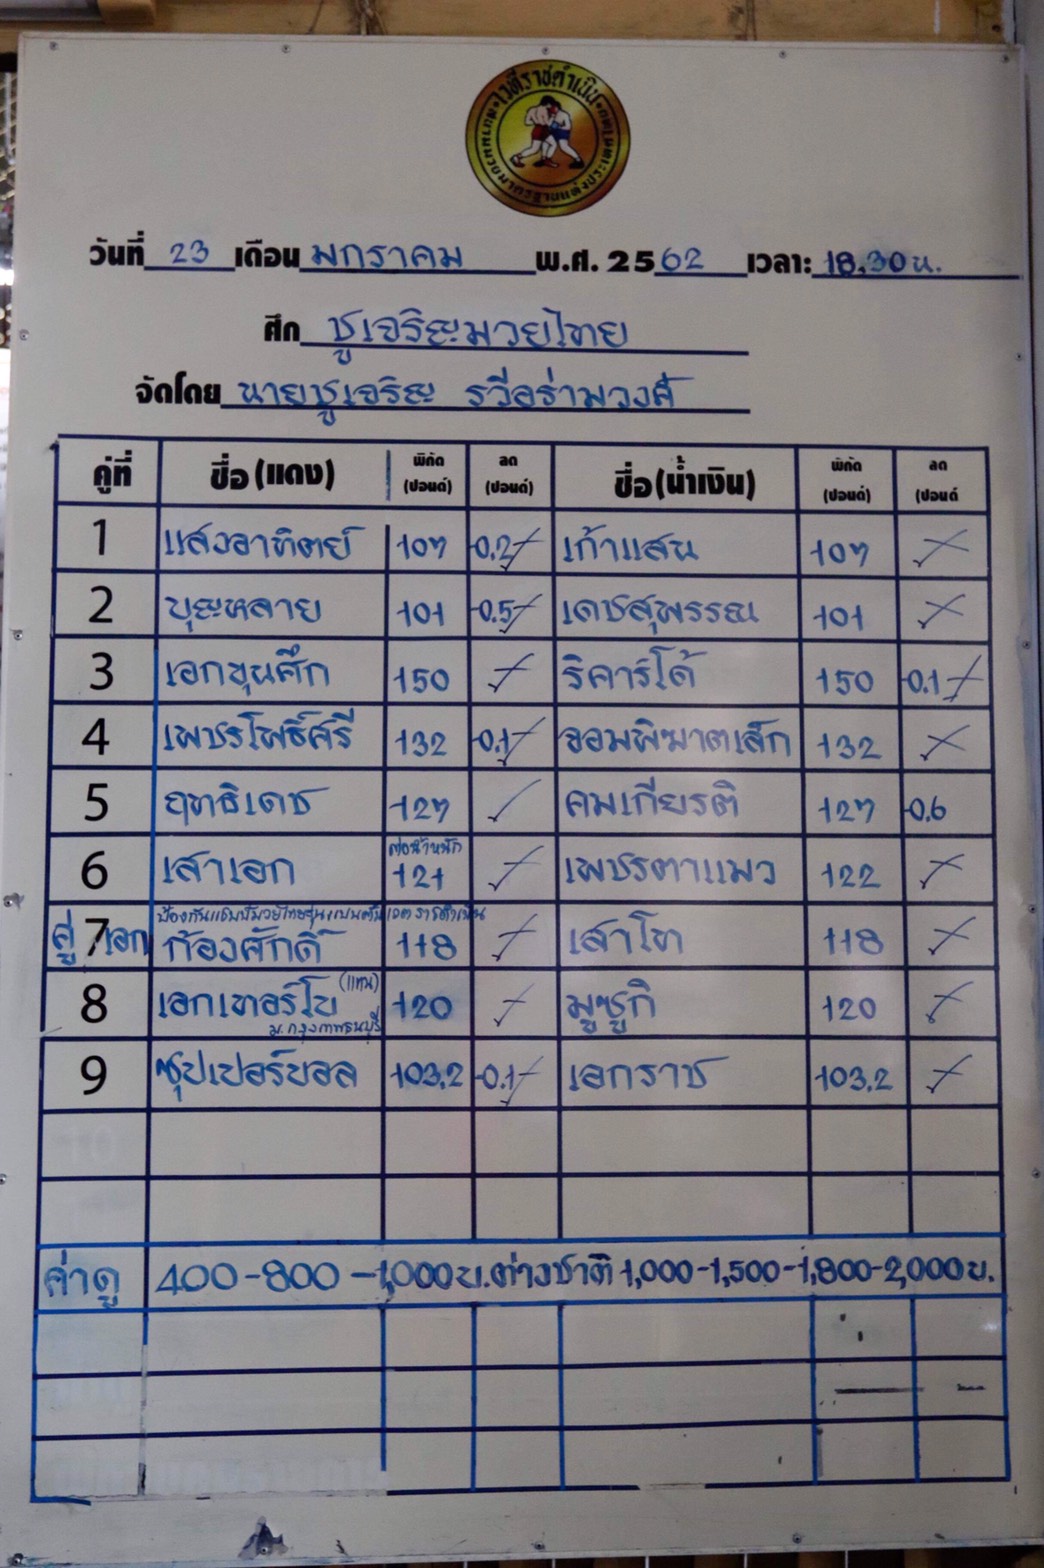 เวทีราชดำเนิน
วันที่ 23 เดือน มกราคม พ.ศ. 2562 เวลา: 18.30 น.
ศึก ชูเจริญมวยไทย
จัดโดย นายชูเจริญ รวีอร่ามวงศ์
คู่ที่ ชื่อ (แดง) พิกัด (ปอนด์) ลด (ปอนด์) ชื่อ (น้ำเงิน) พิกัด (ปอนด์) ลด (ปอนด์
1 แสงอาทิตย์ 107 0.2 เก้าแสน 107
2 บุญหลาย 101 0.5 เดชสุพรรณ 101
3 เอกขุนศึก 150 ริคาร์โด้ 150 0.1
4 เพชรโพธิ์ศรี 132 0.1 จอมพิฆาตเล็ก 132
5 ฤทธิเดช 127 คมเกียรติ 127 0.6
6 เสาเอก ต่อน้ำหนัก 121 เพชรตาแมว 122
ป้องกันแชมป์มวยไทยรุ่นแบนตั้มเวทีราชดำเนิน
คู่ 7 เอก ก้องศักดิ์ 118 เสาโท 118
8 เอกเทอร์โบ (แทน) 120 มูซูกิ 120
ม.กรุงเทพธนบุรี
9 ซุปเปอร์บอล 103.2 0.1 เอกราช 103.2
ค่าดู 400-800-1,000 บ. ต่างชาติ 1,000-1,500-1,800-2,000 บ.